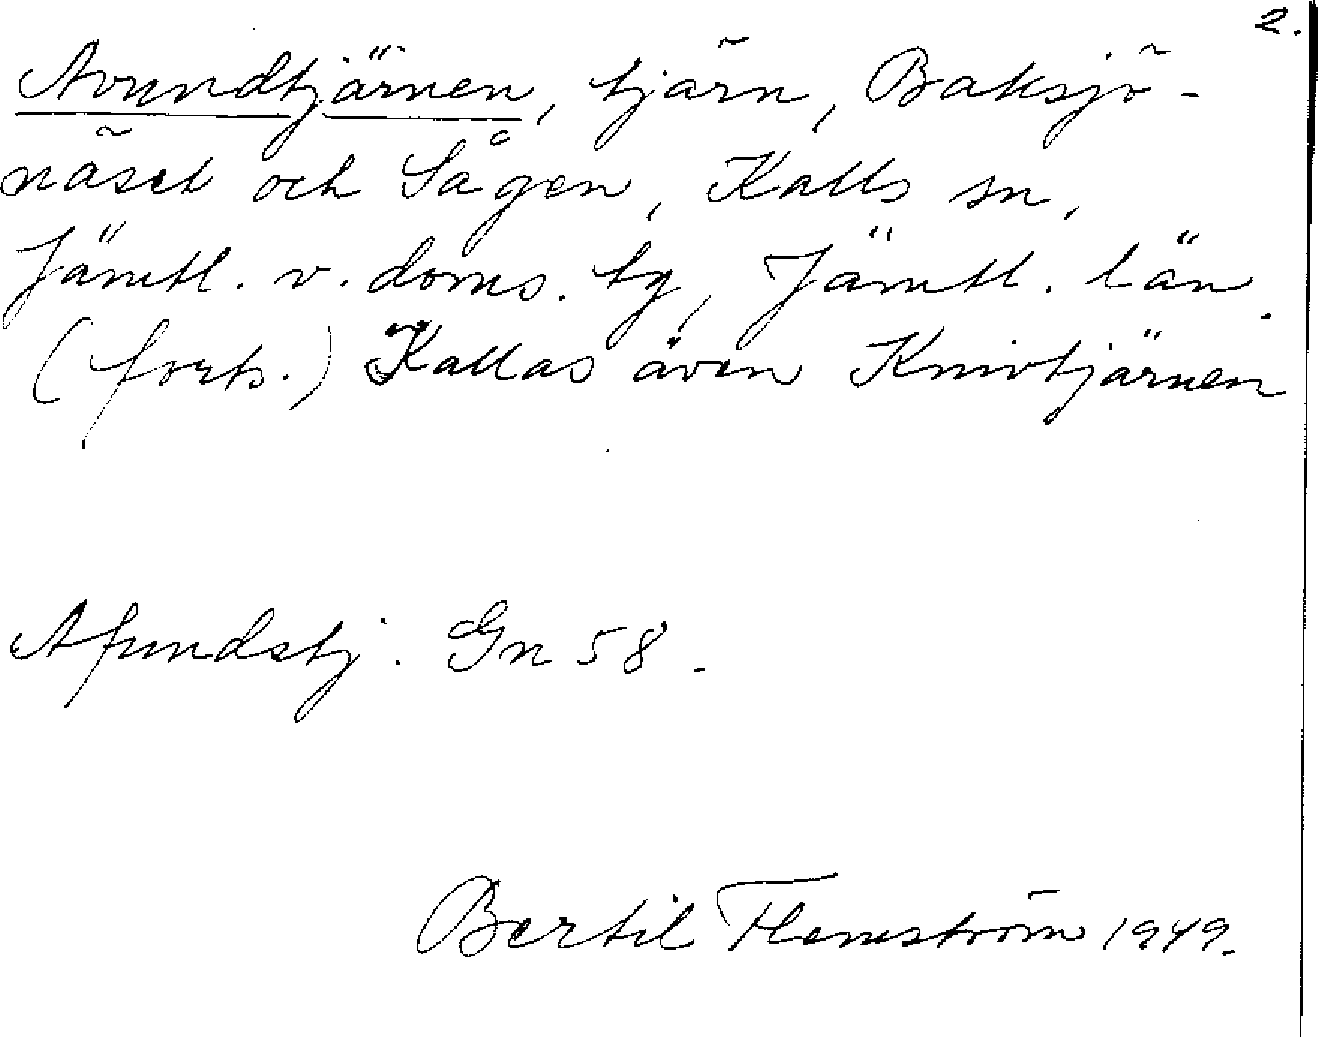 2.
Avundtjärnen, tjärn, Baksjö-
näset och Sågen, Kalls sn,
Jämtl. v. doms. tg, Jämtl. län.
(forts.) Kallas även Knivtjärnen
Afundstj. Gn 58.
Bertil Flemström 1949.